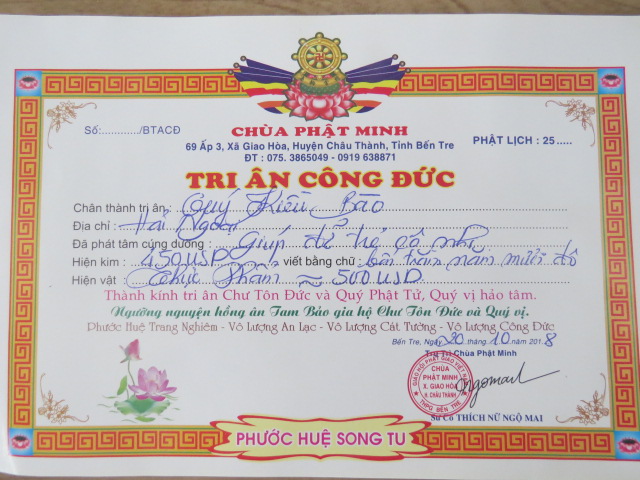 Số:............/BTACĐ
CHÙA PHẬT MINH
69 Ấp 3, Xã Giao Hòa, Huyện Châu Thành, Tỉnh Bến Tre
ĐT : 075. 3865049 - 0919 638871
PHẬT LỊCH : 25.....
TRI ÂN CÔNG ĐỨC
Chân thành tri ân : Quý Kiều Bào
Địa chỉ : Hải Ngoại
Đã phát tâm cúng dường : Giúp đỡ trẻ cô nhi
Hiện kim : 450 USD viết bằng chữ : bốn trăm năm mươi đô
Hiện vật : Thực Phẩm ≈ 500 USD
Thành kính tri ân Chư Tôn Đức và Quý Phật Tử, Quý vị hảo tâm.
Ngưỡng nguyện hồng ân Tam Bảo gia hộ Chư Tôn Đức và Quý vị.
Phước Huệ Trang Nghiêm - Vô Lượng An Lạc - Vô Lượng Cát Tường - Vô Lượng Công Đức
Bến Tre, Ngày 20 tháng 10 năm 2018
Trụ Trì Chùa Phật Minh
GIÁO HỘI PHẬT GIÁO VIỆT NAM
CHÙA
PHẬT MINH
X. GIAO HÒA
H. CHÂU THÀNH
THPG BẾN TRE
Ngomai
Sư Cô THÍCH NỮ NGỘ MAI
PHƯỚC HUỆ SONG TU